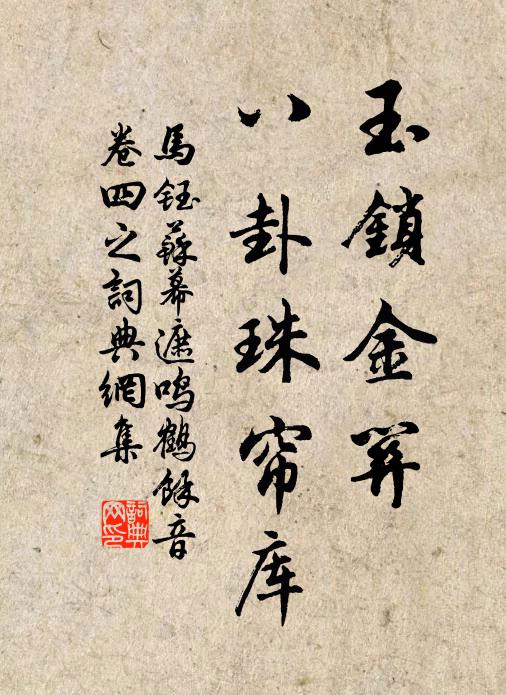 玉鎖金笄
八卦珠帘库
馬鈺蘇幕遮鳴鶴餘音
卷四之詞典網集
詞典网印